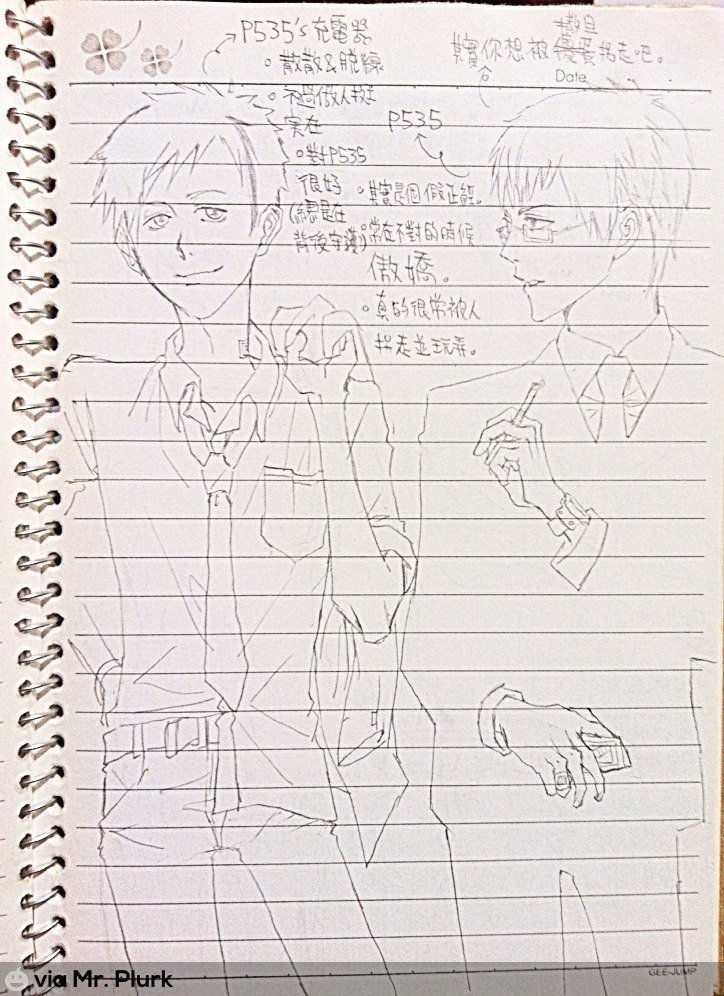 P535's 充電器
。散散&脫線
。不過做人挺
実在
。對P535
很好
(總是在
背後守護)
撒旦
其實你想被優蛋拐走吧。
Date
P535
。其實是個假正經。
。常在不對的時候
傲嬌。
。真的很常被人
拐走並玩弄。
GEE-JUMP
via Mr. Plurk